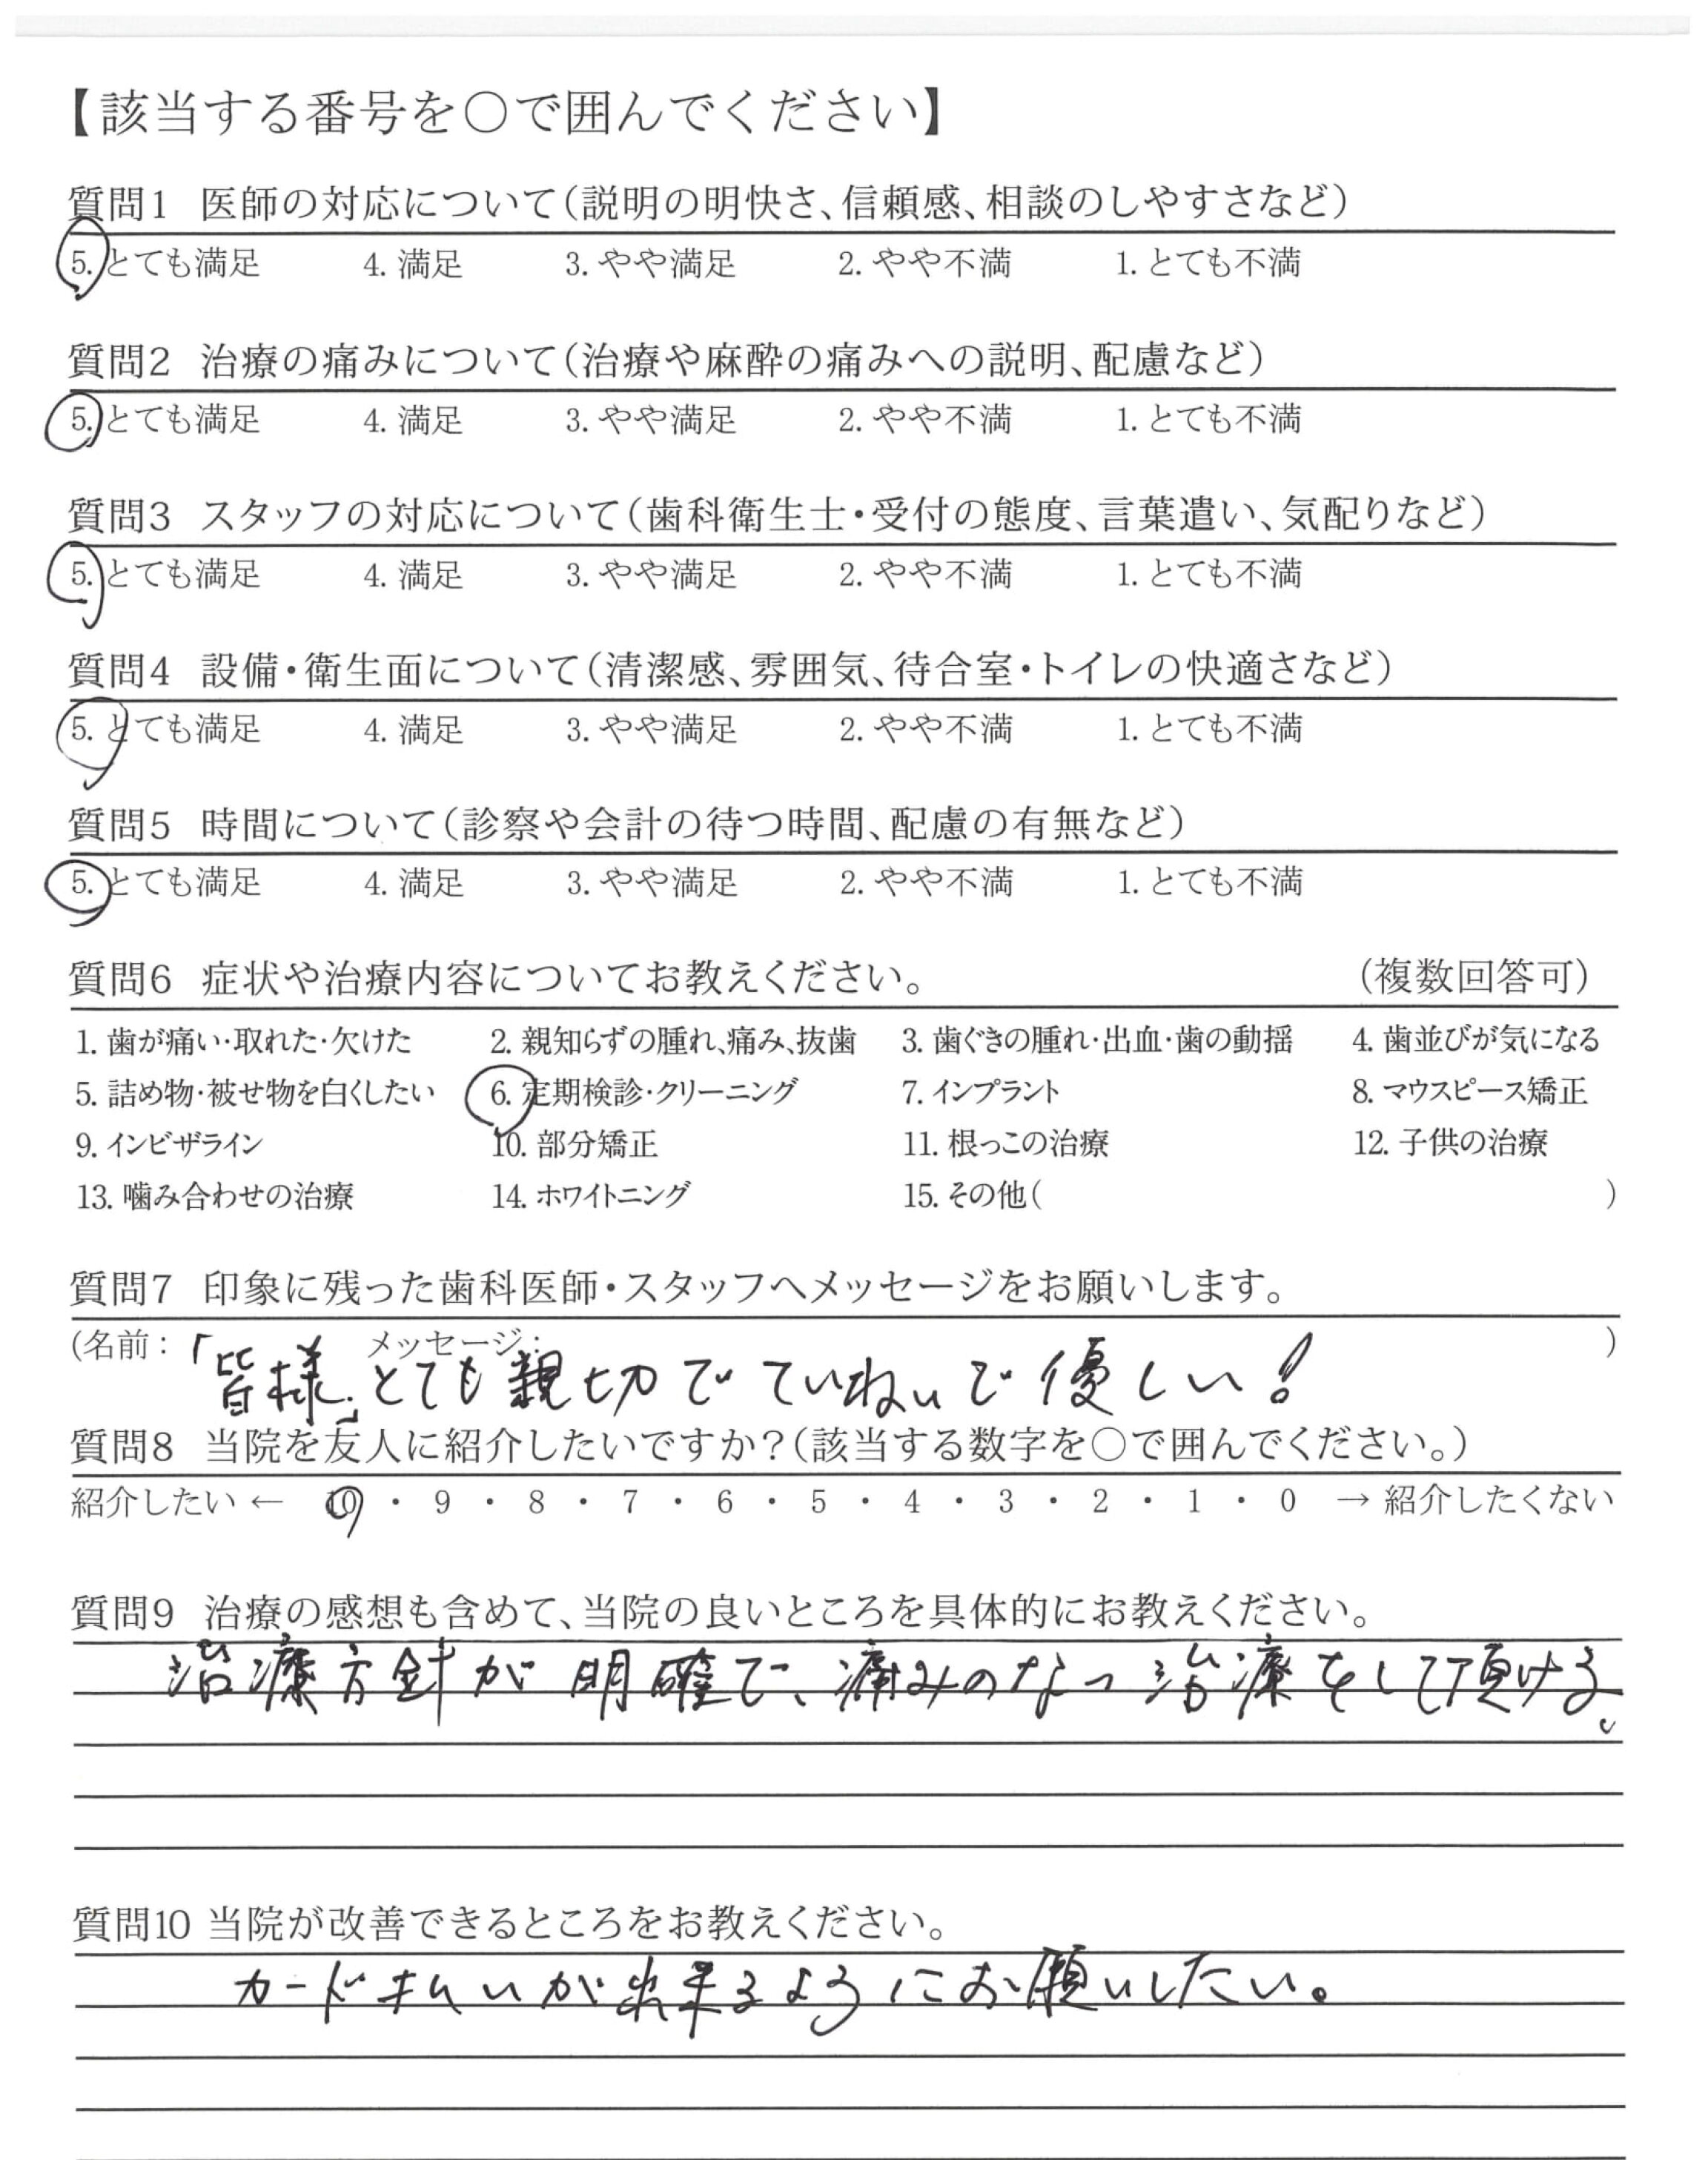 【該当する番号を○で囲んでください】
質問1 医師の対応について(説明の明快さ、信頼感、相談のしやすさなど)
5. とても満足 4. 満足 3. やや満足 2. やや不満 1. とても不満
質問2 治療の痛みについて(治療や麻酔の痛みへの説明、配慮など)
5. とても満足 4. 満足 3. やや満足 2. やや不満 1. とても不満
質問3 スタッフの対応について(歯科衛生士・受付の態度、言葉遣い、気配りなど)
5. とても満足 4. 満足 3. やや満足 2. やや不満 1. とても不満
質問4 設備・衛生面について(清潔感、雰囲気、待合室・トイレの快適さなど)
5. とても満足 4. 満足 3. やや満足 2. やや不満 1. とても不満
質問5 時間について(診察や会計の待つ時間、配慮の有無など)
5. とても満足 4. 満足 3. やや満足 2. やや不満 1. とても不満
質問6 症状や治療内容についてお教えください。 (複数回答可)
1. 歯が痛い・取れた・欠けた 2. 親知らずの腫れ、痛み、抜歯 3. 歯ぐきの腫れ・出血・歯の動揺 4. 歯並びが気になる
5. 詰め物・被せ物を白くしたい 6. 定期検診・クリーニング 7. インプラント 8. マウスピース矯正
9. インビザライン 10. 部分矯正 11. 根っこの治療 12. 子供の治療
13. 噛み合わせの治療 14. ホワイトニング 15. その他( )
質問7 印象に残った歯科医師・スタッフへメッセージをお願いします。
(名前: メッセージ: )
「皆様」とても親切でていねいで優しい!
質問8 当院を友人に紹介したいですか?(該当する数字を○で囲んでください。)
紹介したい ← 10 ・ 9 ・ 8 ・ 7 ・ 6 ・ 5 ・ 4 ・ 3 ・ 2 ・ 1 ・ 0 → 紹介したくない
質問9 治療の感想も含めて、当院の良いところを具体的にお教えください。
治療方針が明確で、痛みのない治療をして頂ける。
質問10 当院が改善できるところをお教えください。
カード払いが出来るようにお願いしたい。